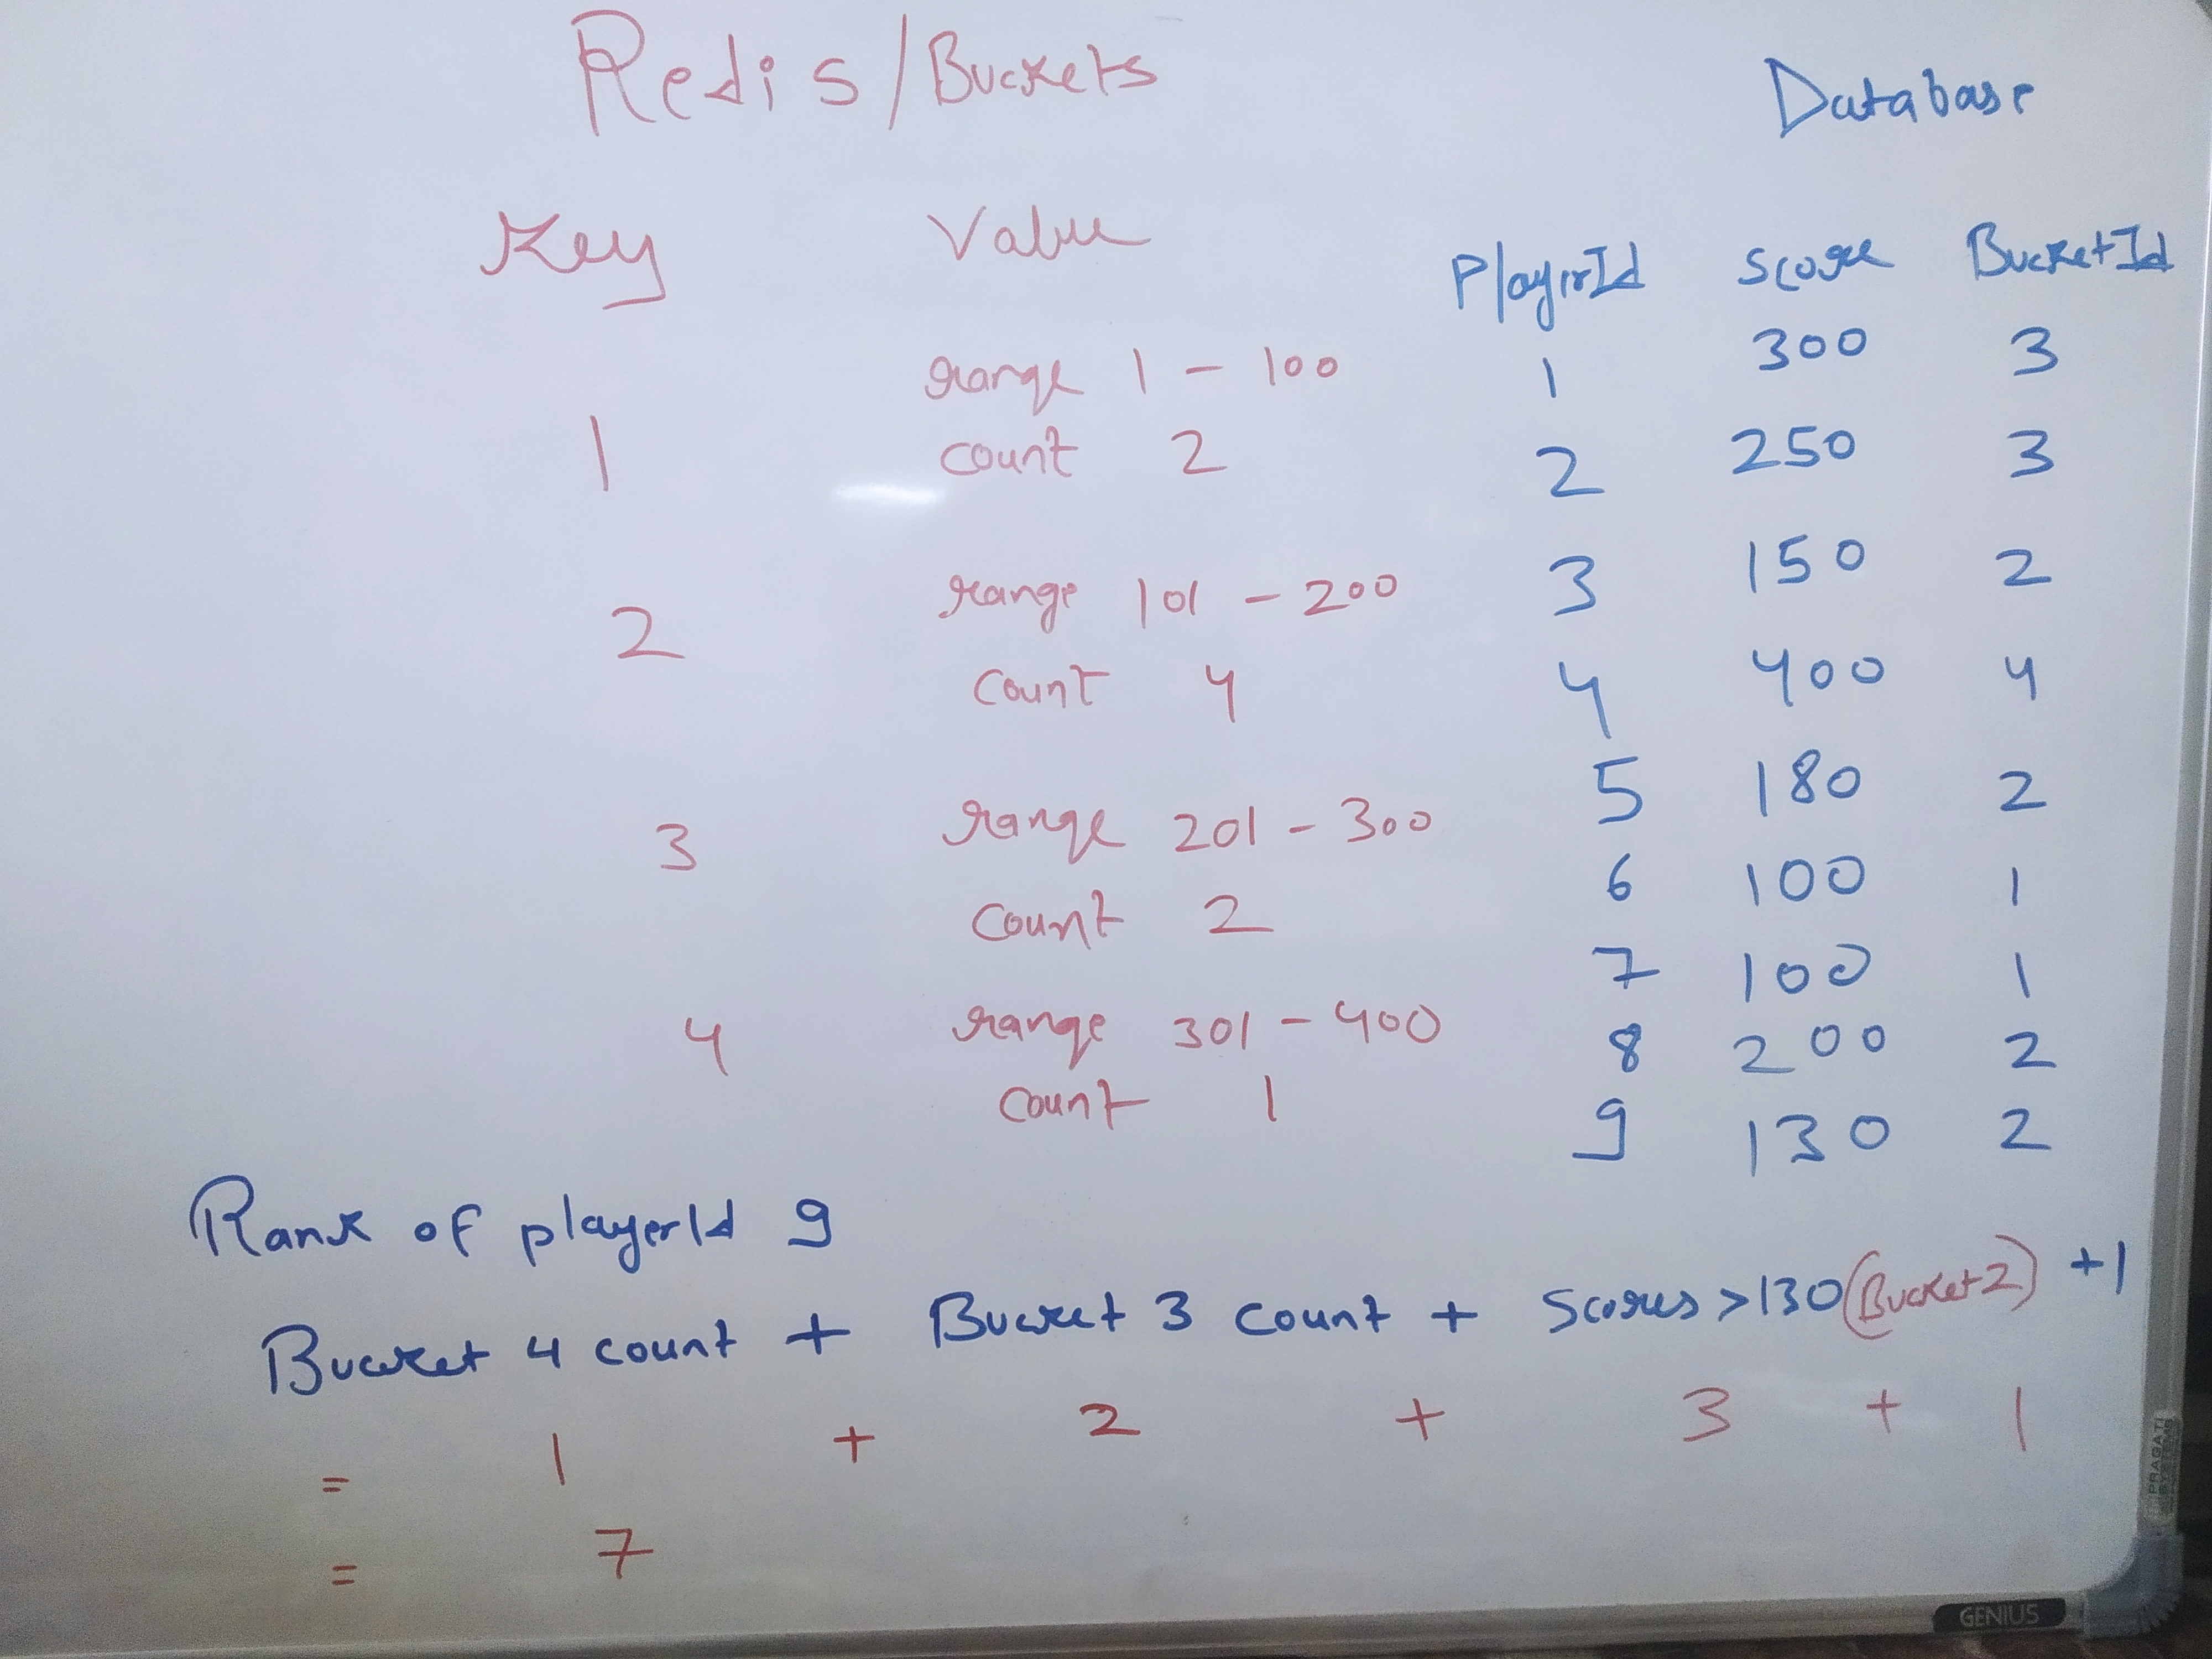 Redis/Buckets
Key Value
1
range 1 - 100
count 2
2
range 101 - 200
count 4
3
range 201 - 300
count 2
4
range 301 - 400
count 1
Database
PlayerId Score BucketId
1 300 3
2 250 3
3 150 2
4 400 4
5 180 2
6 100 1
7 100 1
8 200 2
9 130 2
Rank of playerId 9
Bucket 4 count + Bucket 3 count + Scores >130 (Bucket 2) +1
= 1 + 2 + 3 + 1
= 7
PRAGATI SYSTEMS
GENIUS